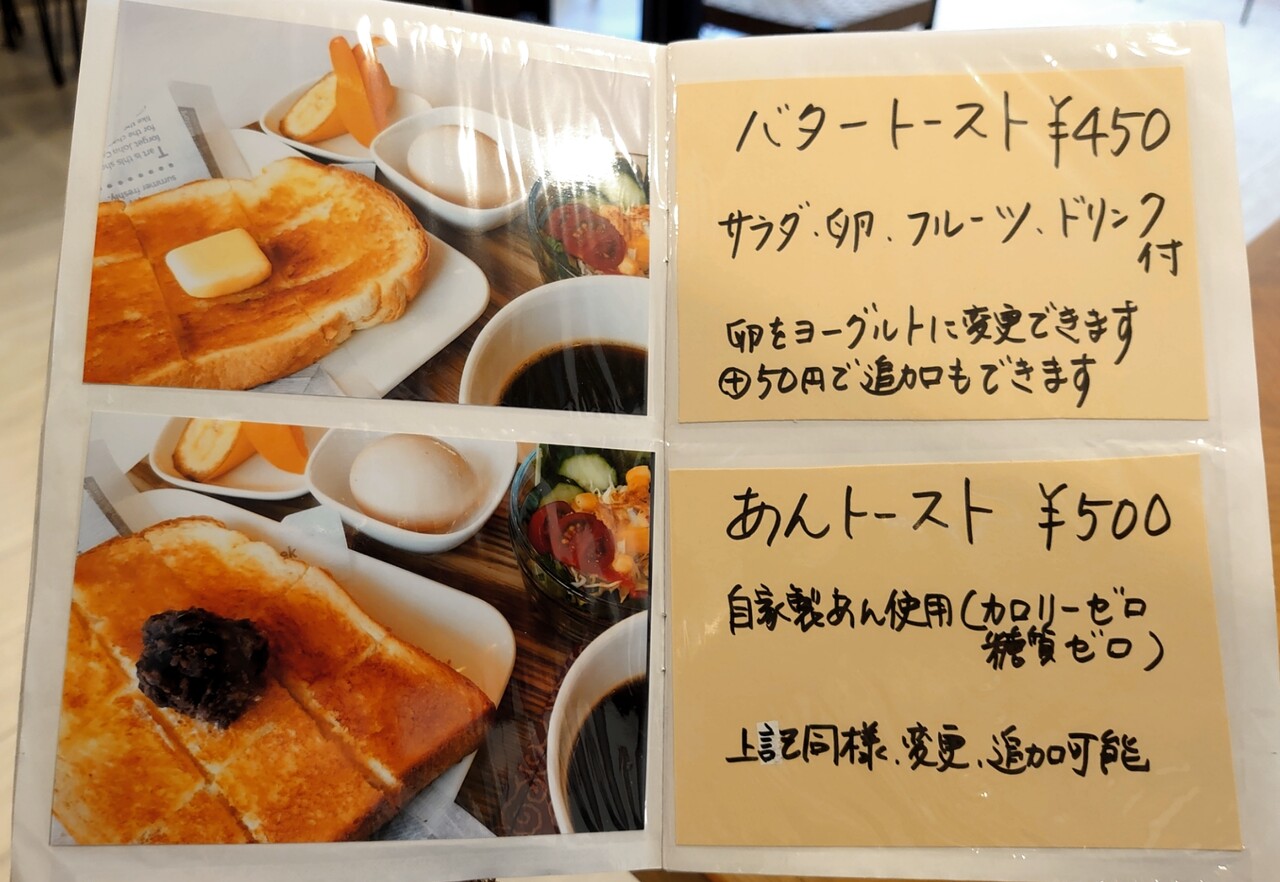 バタートースト ¥450
サラダ、卵、フルーツ、ドリンク
付
卵をヨーグルトに変更できます
⊕50円で追加もできます
あんトースト ¥500
自家製あん使用(カロリーゼロ
糖質ゼロ)
上記同様、変更、追加可能